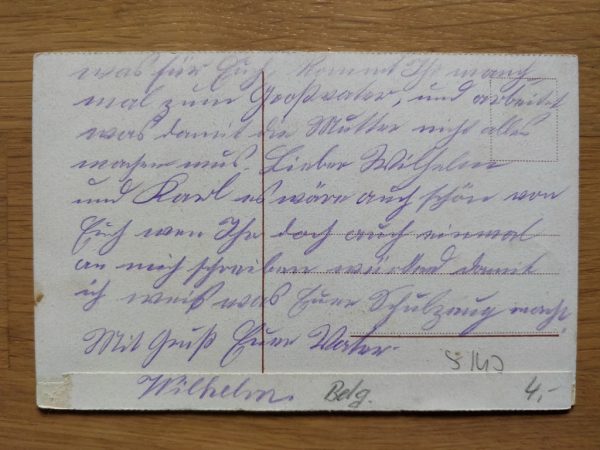 was für Euch kommt Ihr manch
mal zum Großvater, und arbeitet
was damit die Mutter nicht alles
machen mus. Lieber Wilhelm
und Karl es wäre auch schön von
Euch wen Ihr doch auch einmal
an mich schreiben würded damit
ich weiß was Eure Schulzeug macht.
Mit Gruß Euer Vater
Wilhelm. Belg. 4,-